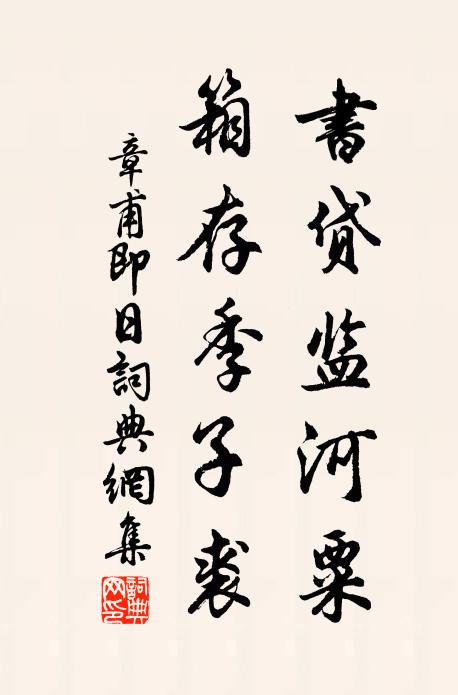 書貸监河粟
箱存季子裘
章甫即日詞典網集
詞典网印